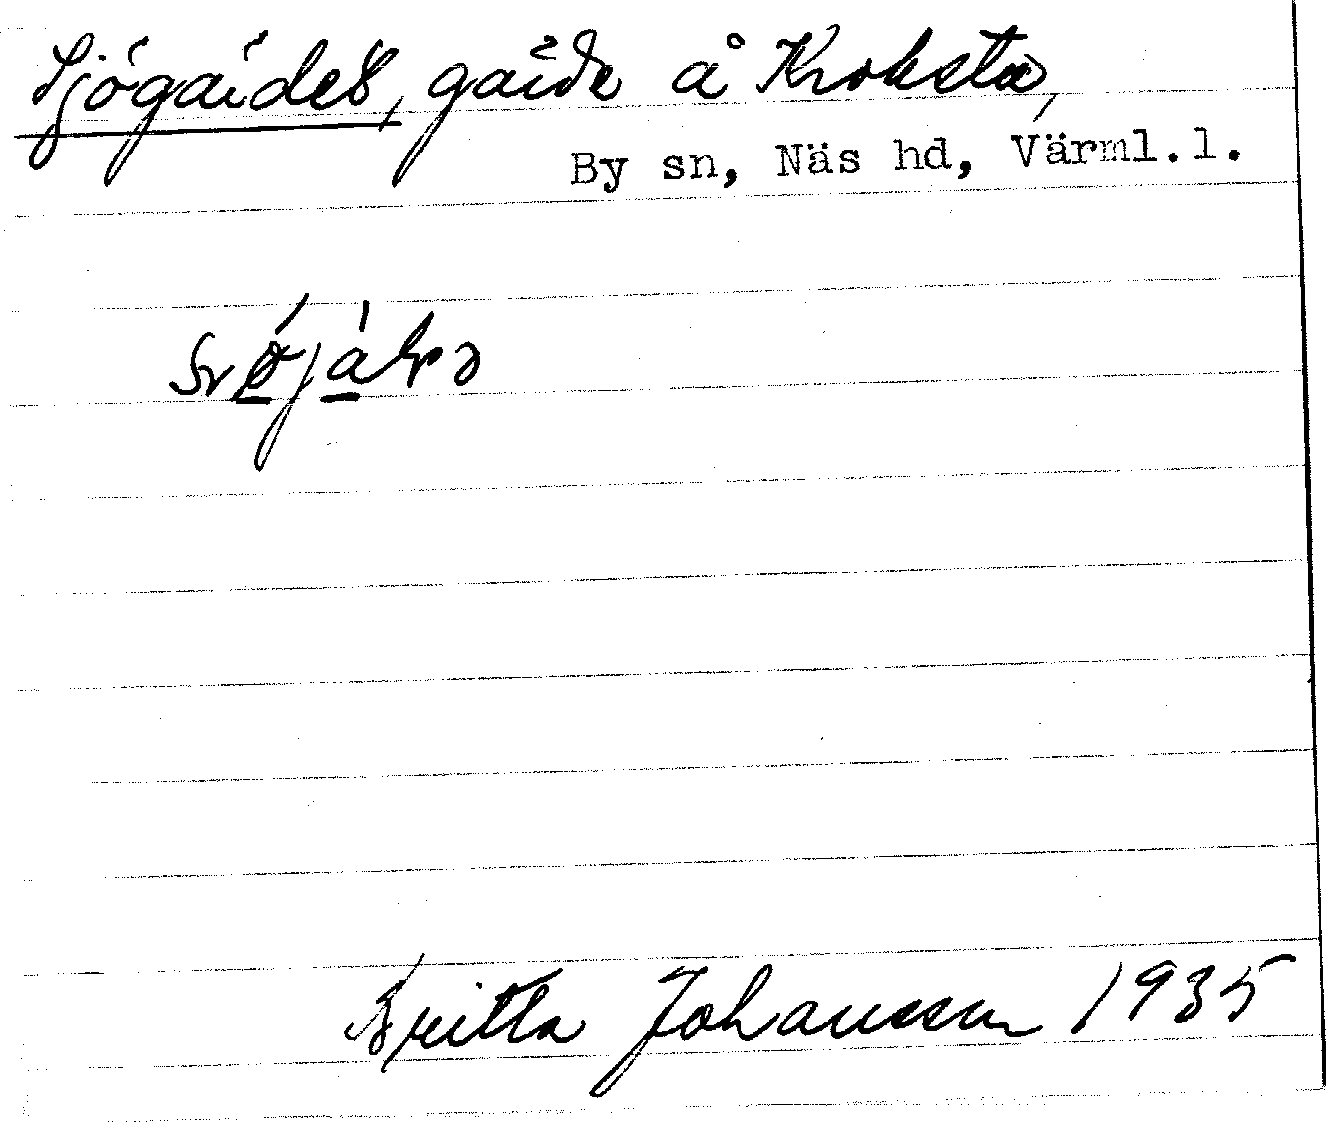 Sjögärdet, gärde å Kroksta,
By sn, Näs hd, Värml.l.
Britta Johansson 1935